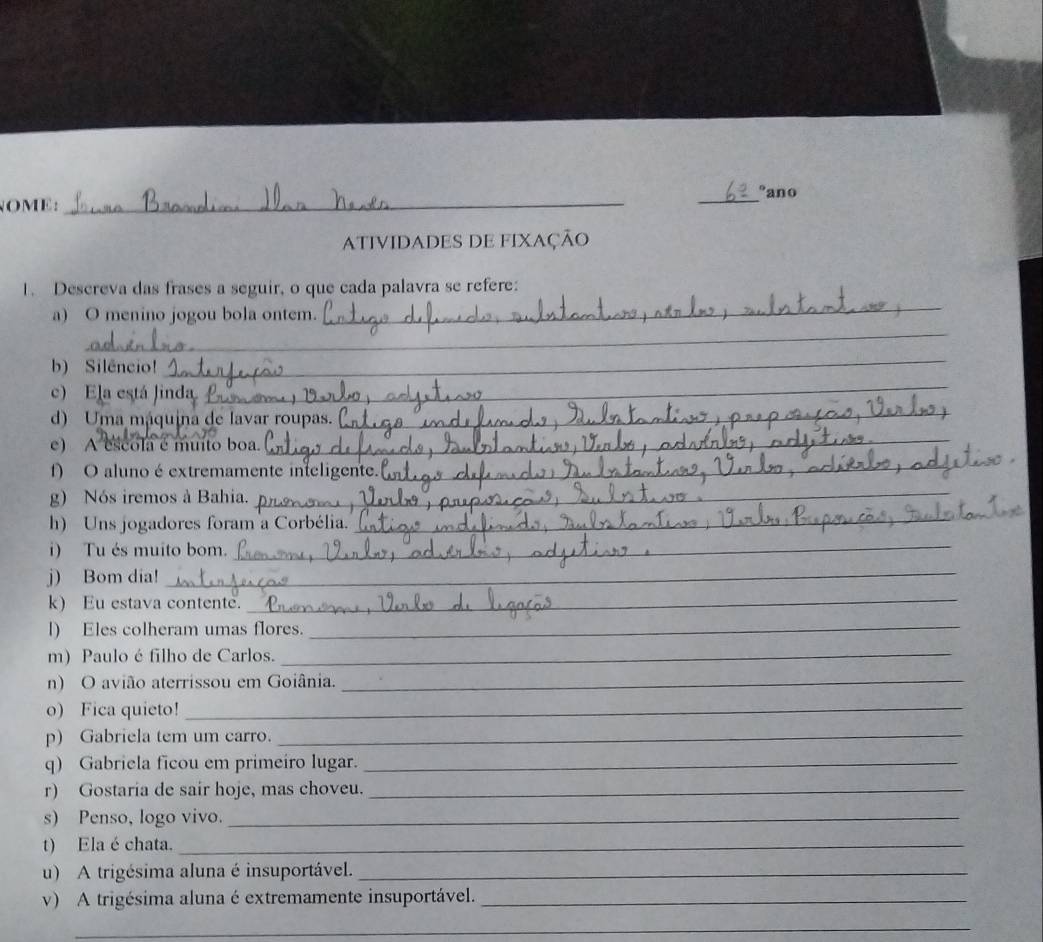 NOME: Brandini
6º ºano
ATIVIDADES DE FIXAÇÃO
1. Descreva das frases a seguir, o que cada palavra se refere:
a) O menino jogou bola ontem. Artigo definido, substantivo, verbo, substantivo,
advérbio.
b) Silêncio! Interjeição
c) Ela está linda. Pronome, Verbo, adjetivo
d) Uma máquina de lavar roupas. Artigo indefinido, Substantivo, preposição, Verbo,
substantivo
e) A escola é muito boa. Artigo definido, Substantivo, Verbo, advérbio, adjetivo.
f) O aluno é extremamente inteligente. Artigo definido, Substantivo, Verbo, adiérbio, adjetivo.
g) Nós iremos à Bahia. pronome, Verbo, preposição, Substivo.
h) Uns jogadores foram a Corbélia. Artigo indefinido, Substantivo, Verbo, Preposição, Substantivo
i) Tu és muito bom. Pronome, Verbo, advérbio, adjetivo.
j) Bom dia! interjeição
k) Eu estava contente. Pronome, Verbo de ligação
l) Eles colheram umas flores.
m) Paulo é filho de Carlos.
n) O avião aterrissou em Goiânia.
o) Fica quieto!
p) Gabriela tem um carro.
q) Gabriela ficou em primeiro lugar.
r) Gostaria de sair hoje, mas choveu.
s) Penso, logo vivo.
t) Ela é chata.
u) A trigésima aluna é insuportável.
v) A trigésima aluna é extremamente insuportável.